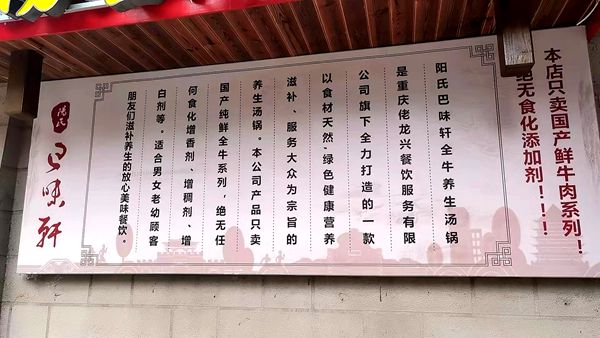 本店只卖国产鲜牛肉系列！
绝无食化添加剂！！！
阳氏巴味轩全牛养生汤锅
是重庆佬龙兴餐饮服务有限
公司旗下全力打造的一款
以食材天然，绿色健康营养
滋补、服务大众为宗旨的
养生汤锅。本公司产品只卖
国产纯鲜全牛系列，绝无任
何食化增香剂、增稠剂、增
白剂等。适合男女老幼顾客
朋友们滋补养生的放心美味餐饮。
阳氏
巴味轩